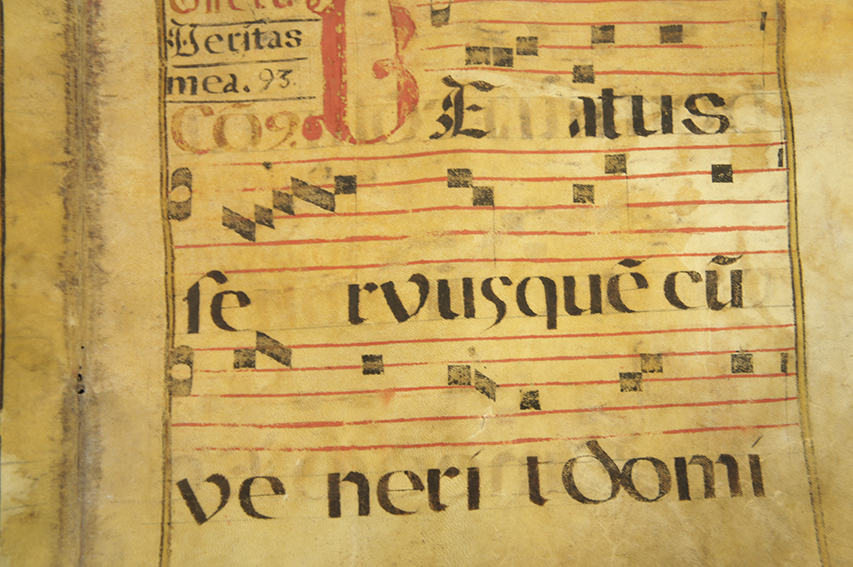 Veritas
mea. 93.
Cõ9.
BEatus
servusquē cũ
ve nerit domi